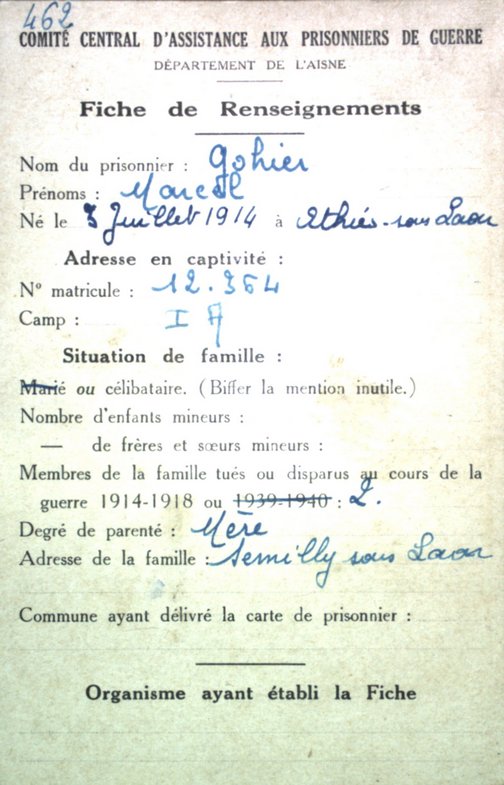 462
COMITÉ CENTRAL D'ASSISTANCE AUX PRISONNIERS DE GUERRE
DÉPARTEMENT DE L'AISNE
Fiche de Renseignements
Nom du prisonnier : Gohier
Prénoms : Marcel
Né le 3 Juillet 1914 à Athies-sous Laon
Adresse en captivité :
N° matricule : 12.364
Camp : I A
Situation de famille :
Marié ou célibataire. (Biffer la mention inutile.)
Nombre d'enfants mineurs :
— de frères et sœurs mineurs :
Membres de la famille tués ou disparus au cours de la
guerre 1914-1918 ou 1939-1940 : 2.
Degré de parenté : Mère
Adresse de la famille : Semilly sous Laon
Commune ayant délivré la carte de prisonnier :
Organisme ayant établi la Fiche